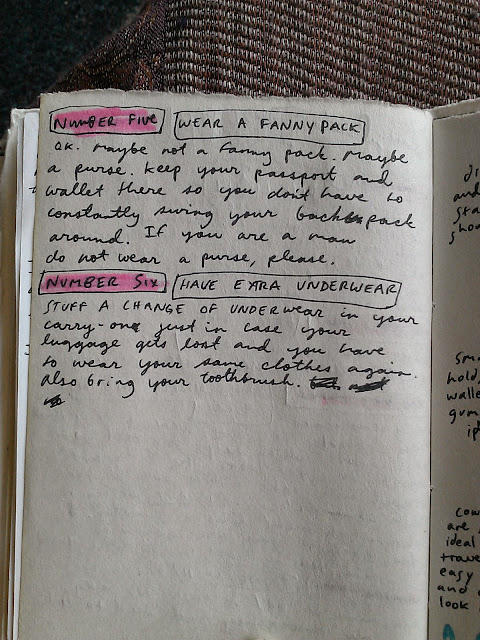 NUMBER FIVE WEAR A FANNY PACK
OK. Maybe not a fanny pack. Maybe
a purse. Keep your passport and
wallet there so you don't have to
constantly swing your backpack
around. If you are a man
do not wear a purse, please.
NUMBER SIX HAVE EXTRA UNDERWEAR
STUFF A CHANGE OF UNDERWEAR in your
carry-one just in case your
luggage gets lost and you have
to wear your same clothes again.
Also bring your toothbrush.
and
hold,
walle
gum
ip
cow
are
ideal
trave
easy
and
look
A